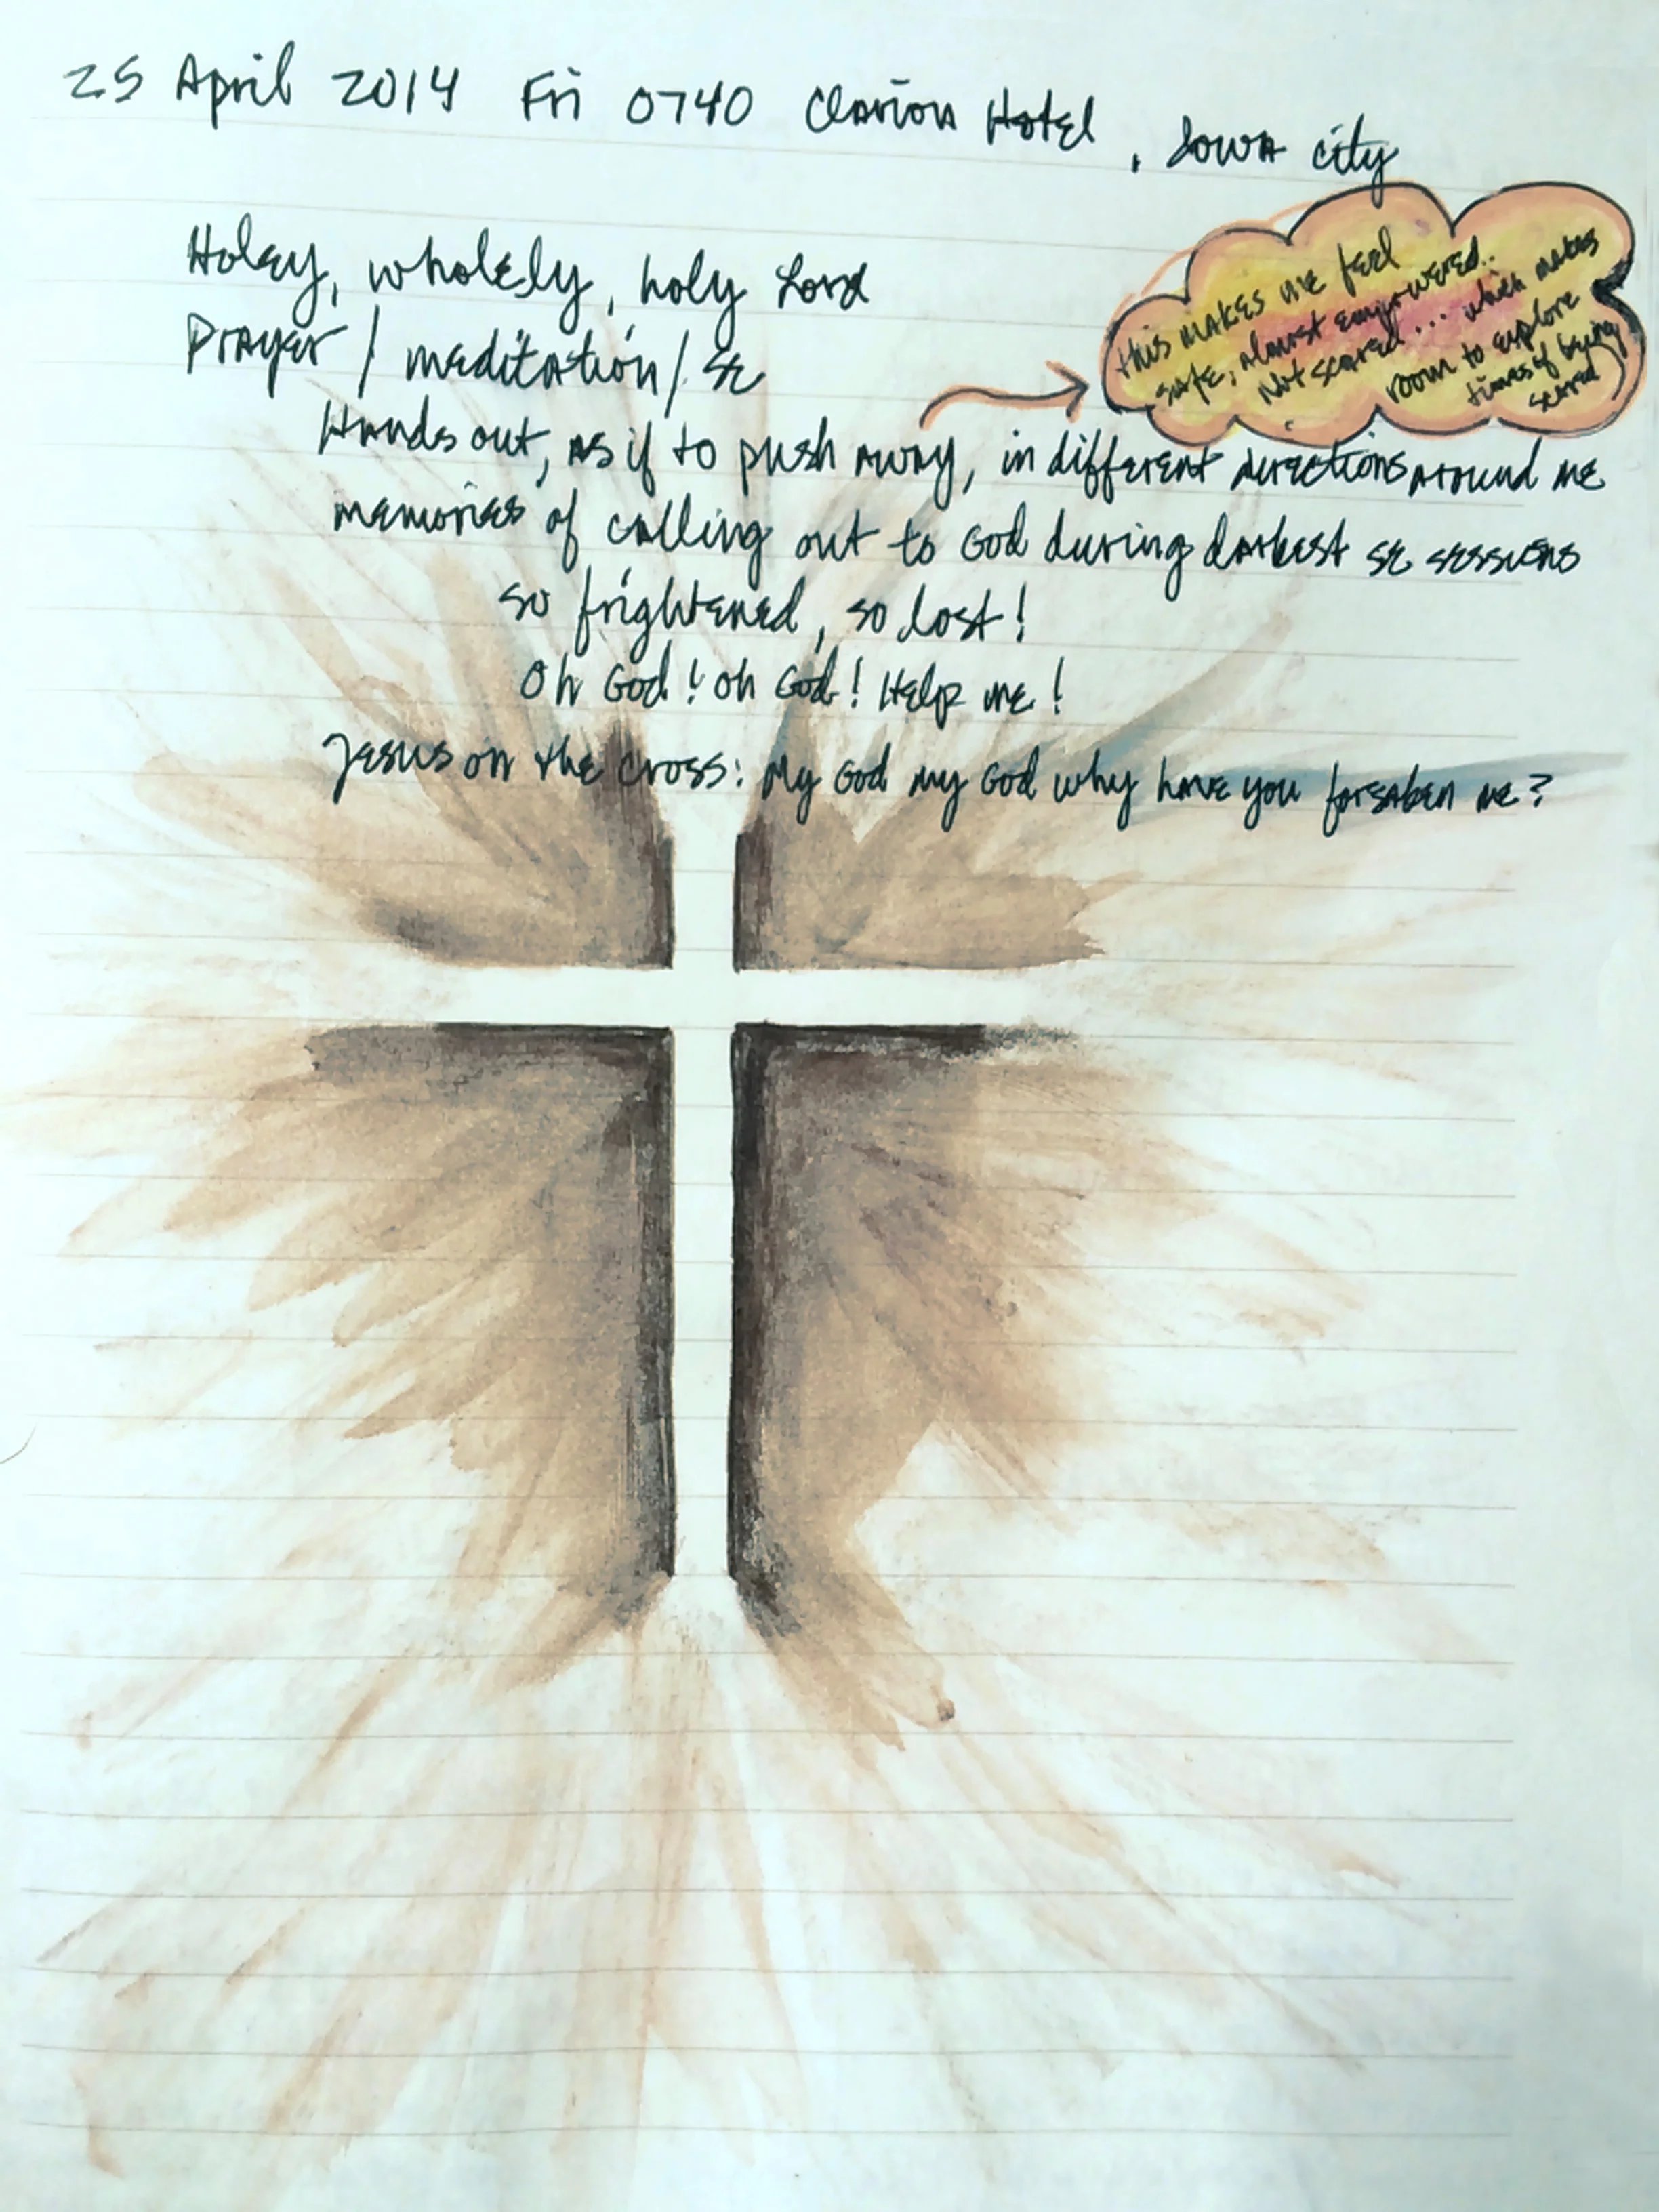 25 April 2014 Fri 0740 Clarion Hotel, Iowa City
Holey, wholely, holy Lord
Prayer / meditation / SE
Hands out, as if to push away, in different directions around me
This makes me feel
safe, almost empowered..
Not scared... which makes
room to explore
times of being
scared
memories of calling out to God during darkest SE sessions
so frightened, so lost!
Oh God! Oh God! Help me!
Jesus on the cross: My God my God why have you forsaken me?